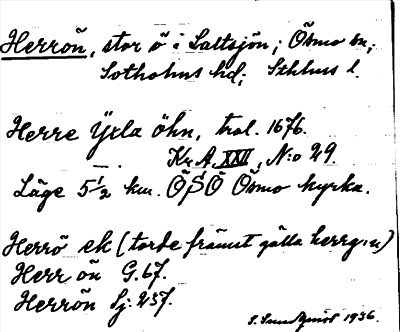 Herrön, stor ö i Saltsjön; Ösmo sn;
Sotholms hd; Sthlms l.
Herre Yxla öhn, trol. 1676.
Kr. A. XXII, N:o 29.
Läge 5 1/2 km. ÖSÖ Ösmo kyrka.
Herrö ek (torde främst gälla herrg:n)
Herr ön G. 67.
Herrön Sj. 257.
1936.